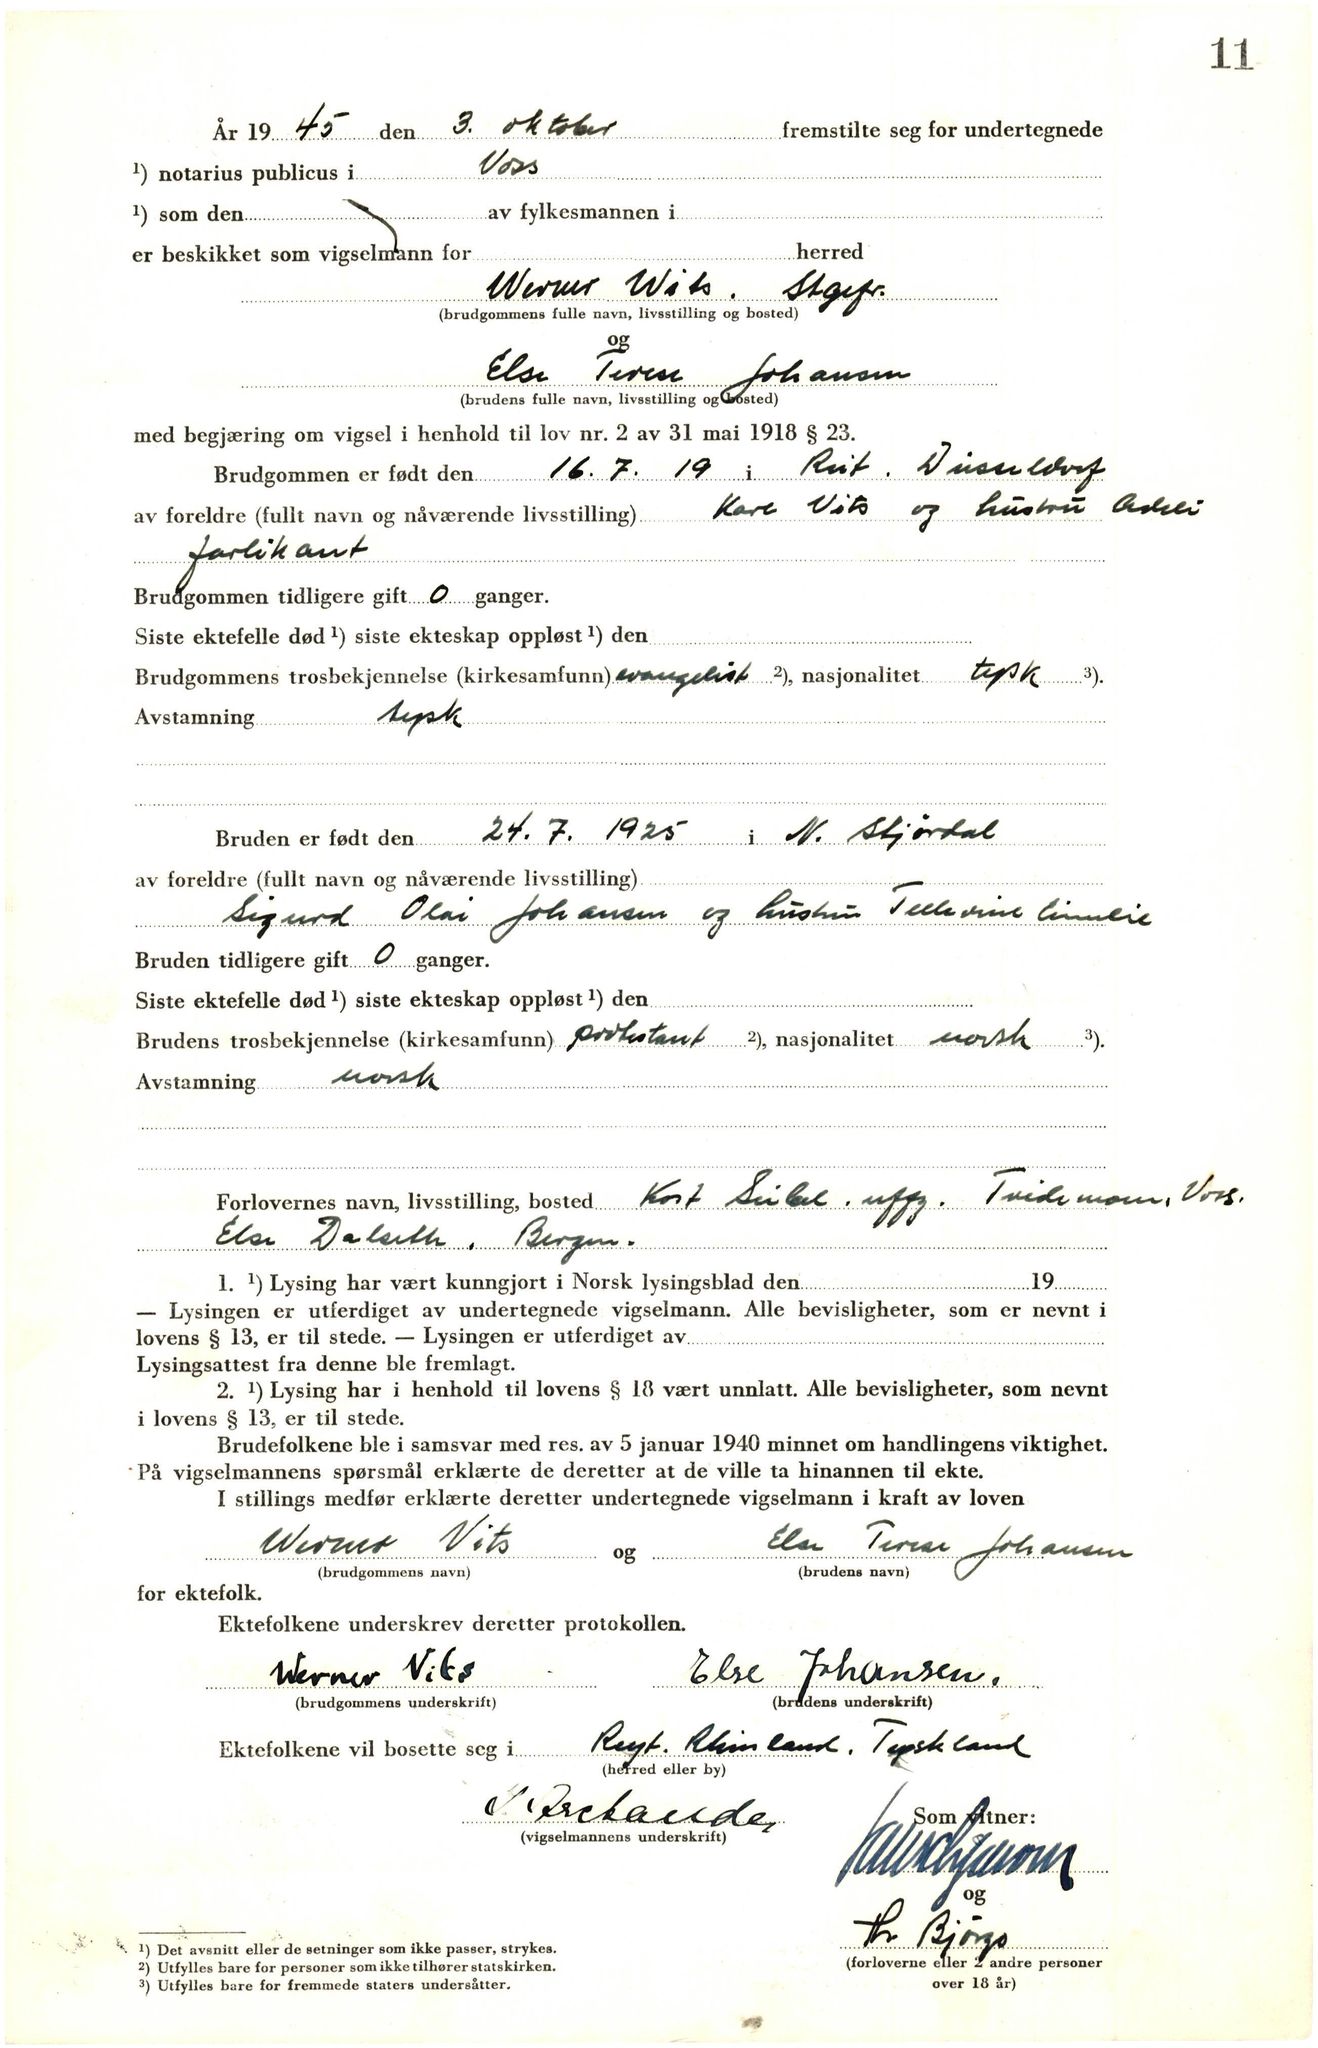 11
År 1945 den 3. oktober fremstilte seg for undertegnede
¹) notarius publicus i Voss
¹) som den av fylkesmannen i
er beskikket som vigselmann for herred
Werner Wits. Stgefr.
(brudgommens fulle navn, livsstilling og bosted)
og
Else Terese Johansen
(brudens fulle navn, livsstilling og bosted)
med begjæring om vigsel i henhold til lov nr. 2 av 31 mai 1918 § 23.
Brudgommen er født den 16. 7. 19 i Düsseldorf
av foreldre (fullt navn og nåværende livsstilling) Karl Vits og hustru
Brudgommen tidligere gift 0 ganger.
Siste ektefelle død ¹) siste ekteskap oppløst ¹) den
Brudgommens trosbekjennelse (kirkesamfunn) evangelist ²), nasjonalitet tysk ³).
Avstamning tysk
Bruden er født den 24. 7. 1925 i N. Stjørdal
av foreldre (fullt navn og nåværende livsstilling)
Sigurd Olai Johansen og hustru
Bruden tidligere gift 0 ganger.
Siste ektefelle død ¹) siste ekteskap oppløst ¹) den
Brudens trosbekjennelse (kirkesamfunn) protestant ²), nasjonalitet norsk ³).
Avstamning norsk
Forlovernes navn, livsstilling, bosted uffz. Voss.
Else Dalseth. Bergen.
1. ¹) Lysing har vært kunngjort i Norsk lysingsblad den 19
— Lysingen er utferdiget av undertegnede vigselmann. Alle bevisligheter, som er nevnt i
lovens § 13, er til stede. — Lysingen er utferdiget av
Lysingsattest fra denne ble fremlagt.
2. ¹) Lysing har i henhold til lovens § 18 vært unnlatt. Alle bevisligheter, som nevnt
i lovens § 13, er til stede.
Brudefolkene ble i samsvar med res. av 5 januar 1940 minnet om handlingens viktighet.
På vigselmannens spørsmål erklærte de deretter at de ville ta hinannen til ekte.
I stillings medfør erklærte deretter undertegnede vigselmann i kraft av loven
Werner Vits og Else Terese Johansen
(brudgommens navn) (brudens navn)
for ektefolk.
Ektefolkene underskrev deretter protokollen.
Werner Vits Else Johansen.
(brudgommens underskrift) (brudens underskrift)
Ektefolkene vil bosette seg i Rhinland. Tyskland
(herred eller by)
Som vitner:
(vigselmannens underskrift)
og
Bjørgo
(forloverne eller 2 andre personer
over 18 år)
¹) Det avsnitt eller de setninger som ikke passer, strykes.
²) Utfylles bare for personer som ikke tilhører statskirken.
³) Utfylles bare for fremmede staters undersåtter.